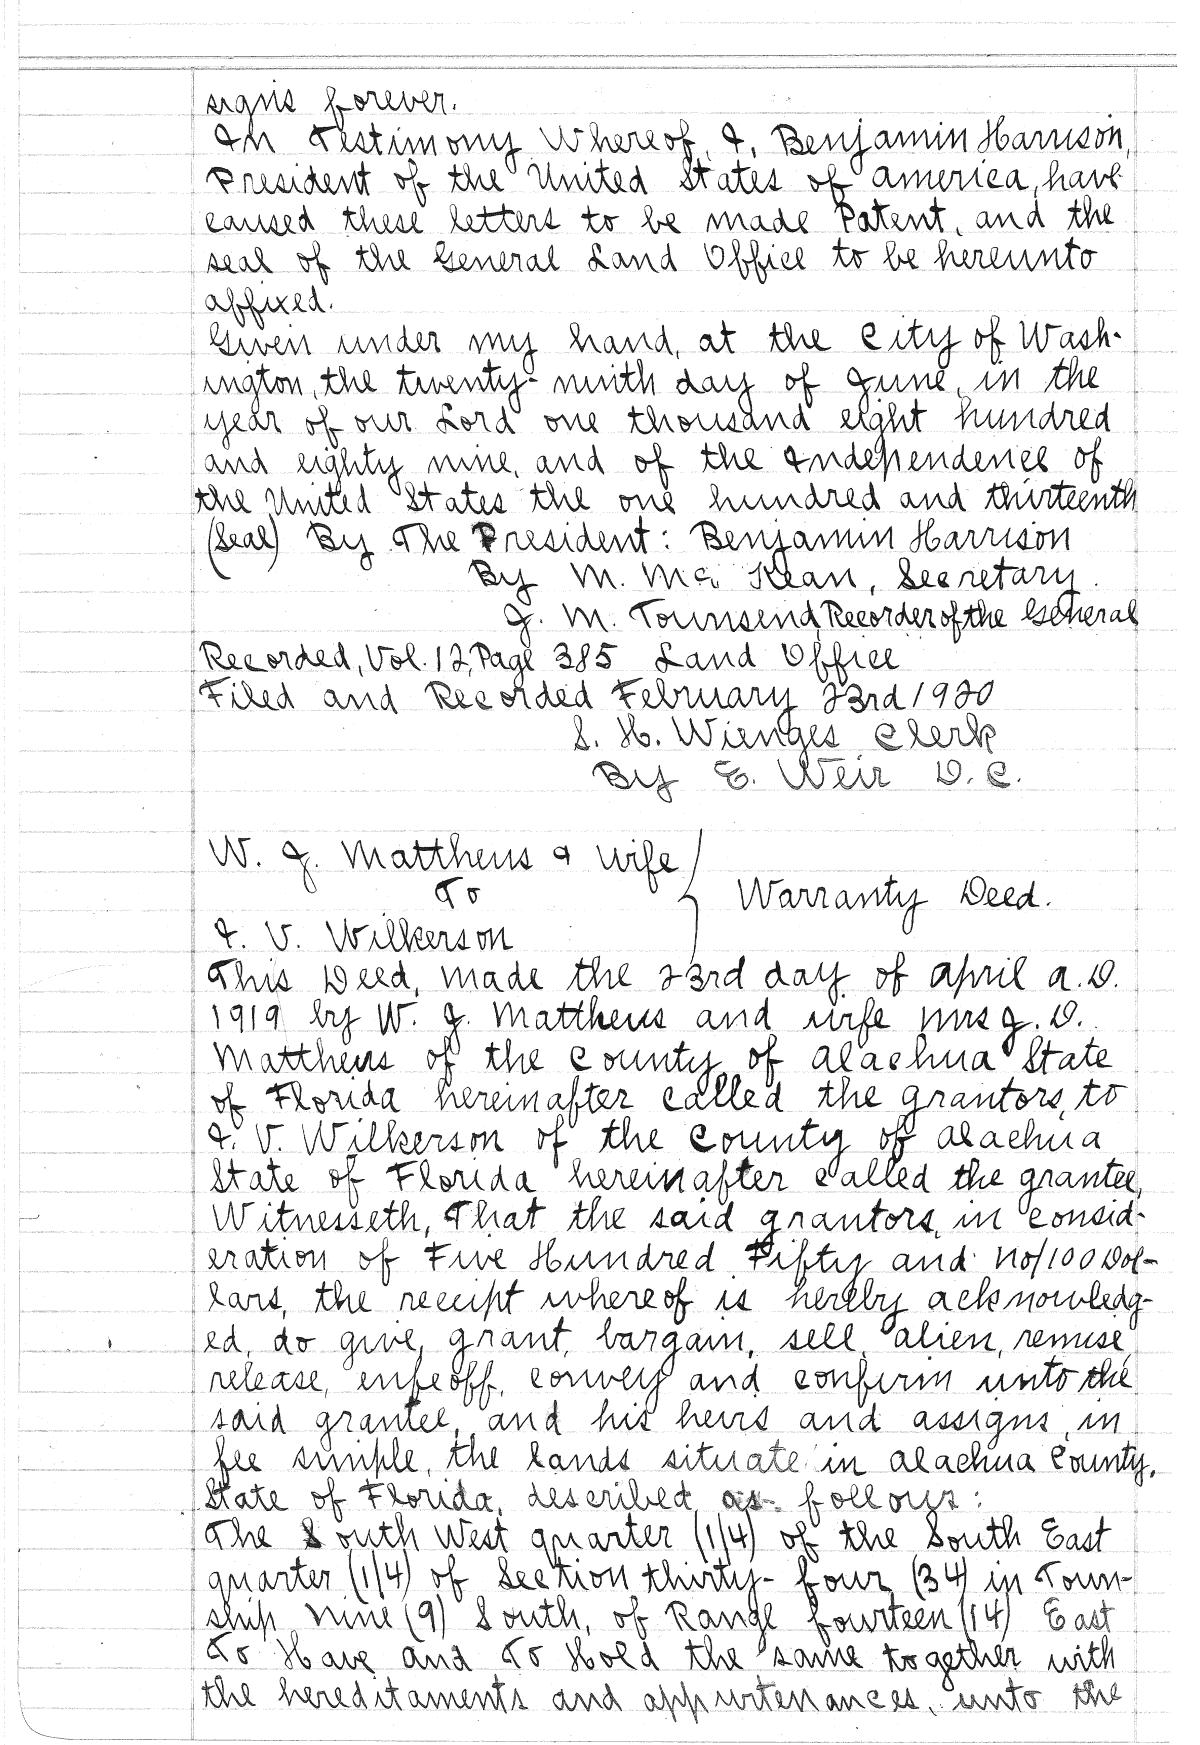 signs forever.
In Testimony Whereof, I, Benjamin Harrison,
President of the United States of america, have
caused these letters to be made Patent, and the
seal of the General Land Office to be hereunto
affixed.
Given under my hand, at the City of Wash-
ington, the twenty-ninth day of June, in the
year of our Lord one thousand eight hundred
and eighty nine, and of the Independence of
the United States the one hundred and thirteenth
(Seal) By The President: Benjamin Harrison
By M. Mc Kean, Secretary.
J. M. Townsend, Recorder of the General
Recorded, Vol. 12, Page 385 Land Office
Filed and Recorded February 23rd 1920
S. H. Wienges Clerk
By E. Weir D. C.
W. J. Matthews & wife
To
Warranty Deed.
I. V. Wilkerson
This Deed, made the 23rd day of april a.D.
1919 by W. J. Matthews and wife Mrs J. D.
Matthews of the County of alachua State
of Florida hereinafter called the grantors, to
I. V. Wilkerson of the County of alachua
State of Florida hereinafter called the grantee,
Witnesseth, That the said grantors, in consid-
eration of Five Hundred Fifty and no/100 Dol-
lars, the receipt whereof is hereby acknowledg-
ed, do give, grant, bargain, sell, alien, remise,
release, enfeoff, convey and confirm unto the
said grantee, and his heirs and assigns, in
fee simple, the lands situate in alachua County,
State of Florida, described as follows:
The South West quarter (1/4) of the South East
quarter (1/4) of Section thirty-four (34) in Town-
ship nine (9) South, of Range fourteen (14) East
To Have and To Hold the same together with
the hereditaments and appurtenances, unto the